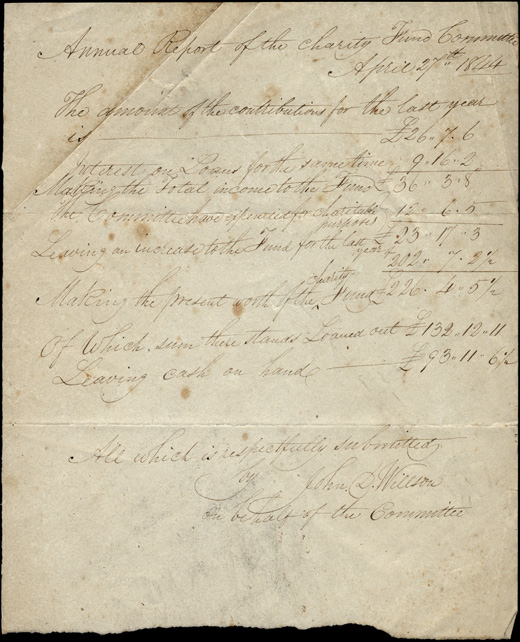 Annual Report of the Charity Fund Committee
April 27th 1844
The amount of the contributions for the last year
is £26 " 7 " 6
Interest on Loans for the same time 9 " 16 " 2
Making the Total income to the Fund £36 " 3 " 8
The Committee have expended for Charitable purposes 12 " 6 " 5
Leaving an increase to the Fund for the last year £23 " 17 " 3
202 " 7 " 2½
Making the present worth of the Charity Fund £226 " 4 " 5½
Of Which sum there stands Loaned out £132 " 12 " 11
Leaving cash on hand £93 " 11 " 6½
All which is respectfully submitted,
by John D. Willson
on behalf of the Committee